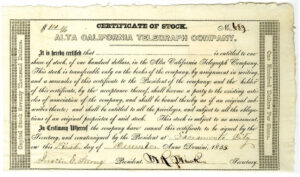 CERTIFICATE OF STOCK.
ALTA CALIFORNIA TELEGRAPH COMPANY.
It is hereby certified that is entitled to one
share of stock, of one hundred dollars, in the Alta California Telegraph Company.
This stock is transferable only on the books of the company, by assignment in writing
and a surrender of this certificate to the President of the company and the holder
of this certificate, by the acceptance thereof, shall become a party to the existing arti-
cles of association of the company, and shall be bound thereby as if an original sub-
scriber thereto; and shall be entitled to all the privileges, and subject to all the oblig-
ations of an original proprietor of said stock.
In Testimony Whereof, the company have caused this certificate to be signed by the
Secretary, and countersigned by the President at Sacramento City
on this day of December Anno Domini, 1853
Secretary. President.